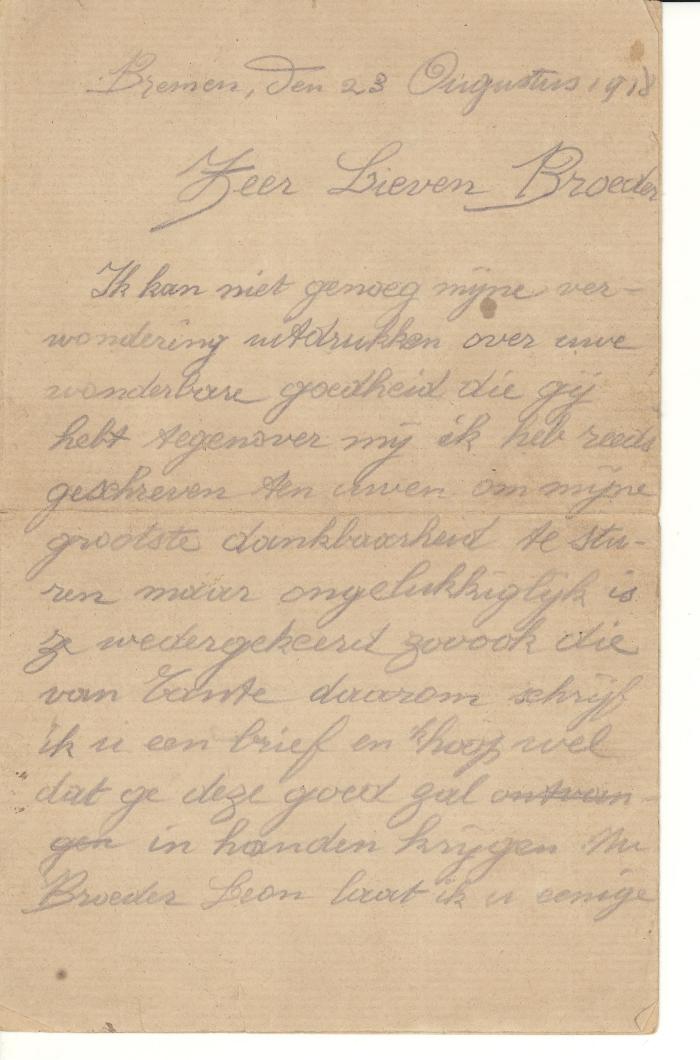 Bremen, den 23 Ougustus 1918
Zeer Lieven Broeder
Ik kan niet genoeg mijne ver-
wondering uitdrukken over uwe
wonderbare goedheid die gij
hebt tegenover mij ik heb reeds
geschreven ten uwen om mijne
grootste dankbaarheid te stu-
ren maar ongelukkiglijk is
ze wedergekeerd zovook die
van Tante daarom schrijf
ik u een brief en 'k hoop wel
dat ge deze goed zal ontvan-
gen in handen krijgen Nu
Broeder Leon laat ik u eenige